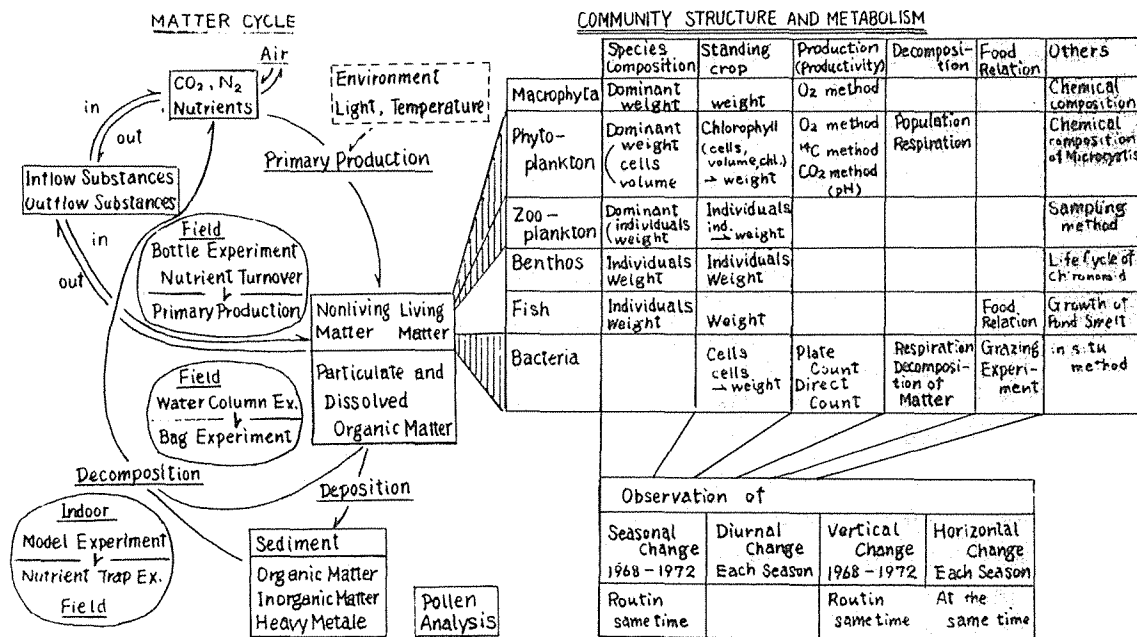 MATTER CYCLE
Air
CO₂, N₂
Nutrients
in
out
Environment
Light, Temperature
Primary Production
Inflow Substances
Outflow Substances
in
out
Field
Bottle Experiment
Nutrient Turnover
Primary Production
Nonliving Living
Matter Matter
Particulate and
Dissolved
Organic Matter
Field
Water Column Ex.
Bag Experiment
Decomposition
Deposition
Indoor
Model Experiment
Nutrient Trap Ex.
Field
Sediment
Organic Matter
Inorganic Matter
Heavy Metale
Pollen
Analysis
COMMUNITY STRUCTURE AND METABOLISM
Species
Composition
Standing
crop
Production
(Productivity)
Decomposi-
tion
Food
Relation
Others
Macrophyta
Dominant
weight
weight
O₂ method
Chemical
composition
Phyto-
plankton
Dominant
weight
( cells
volume
Chlorophyll
(cells,
volume, chl.)
→ weight
O₂ method
¹⁴C method
CO₂ method
(pH)
Population
Respiration
Chemical
composition
of Microcystis
Zoo-
plankton
Dominant
(individuals
weight
Individuals
ind.
→ weight
Sampling
method
Benthos
Individuals
Weight
Individuals
Weight
Life Cycle of
Fish
Individuals
Weight
Weight
Food
Relation
Growth of
Pond Smelt
Bacteria
Cells
cells
→ weight
Plate
Count
Direct
Count
Respiration
Decomposi-
tion of
Matter
Grazing
Experi-
ment
in situ
method
Observation of
Seasonal
Change
1968-1972
Diurnal
Change
Each Season
Vertical
Change
1968-1972
Horizontal
Change
Each Season
Routin
same time
Routin
same time
At the
same time